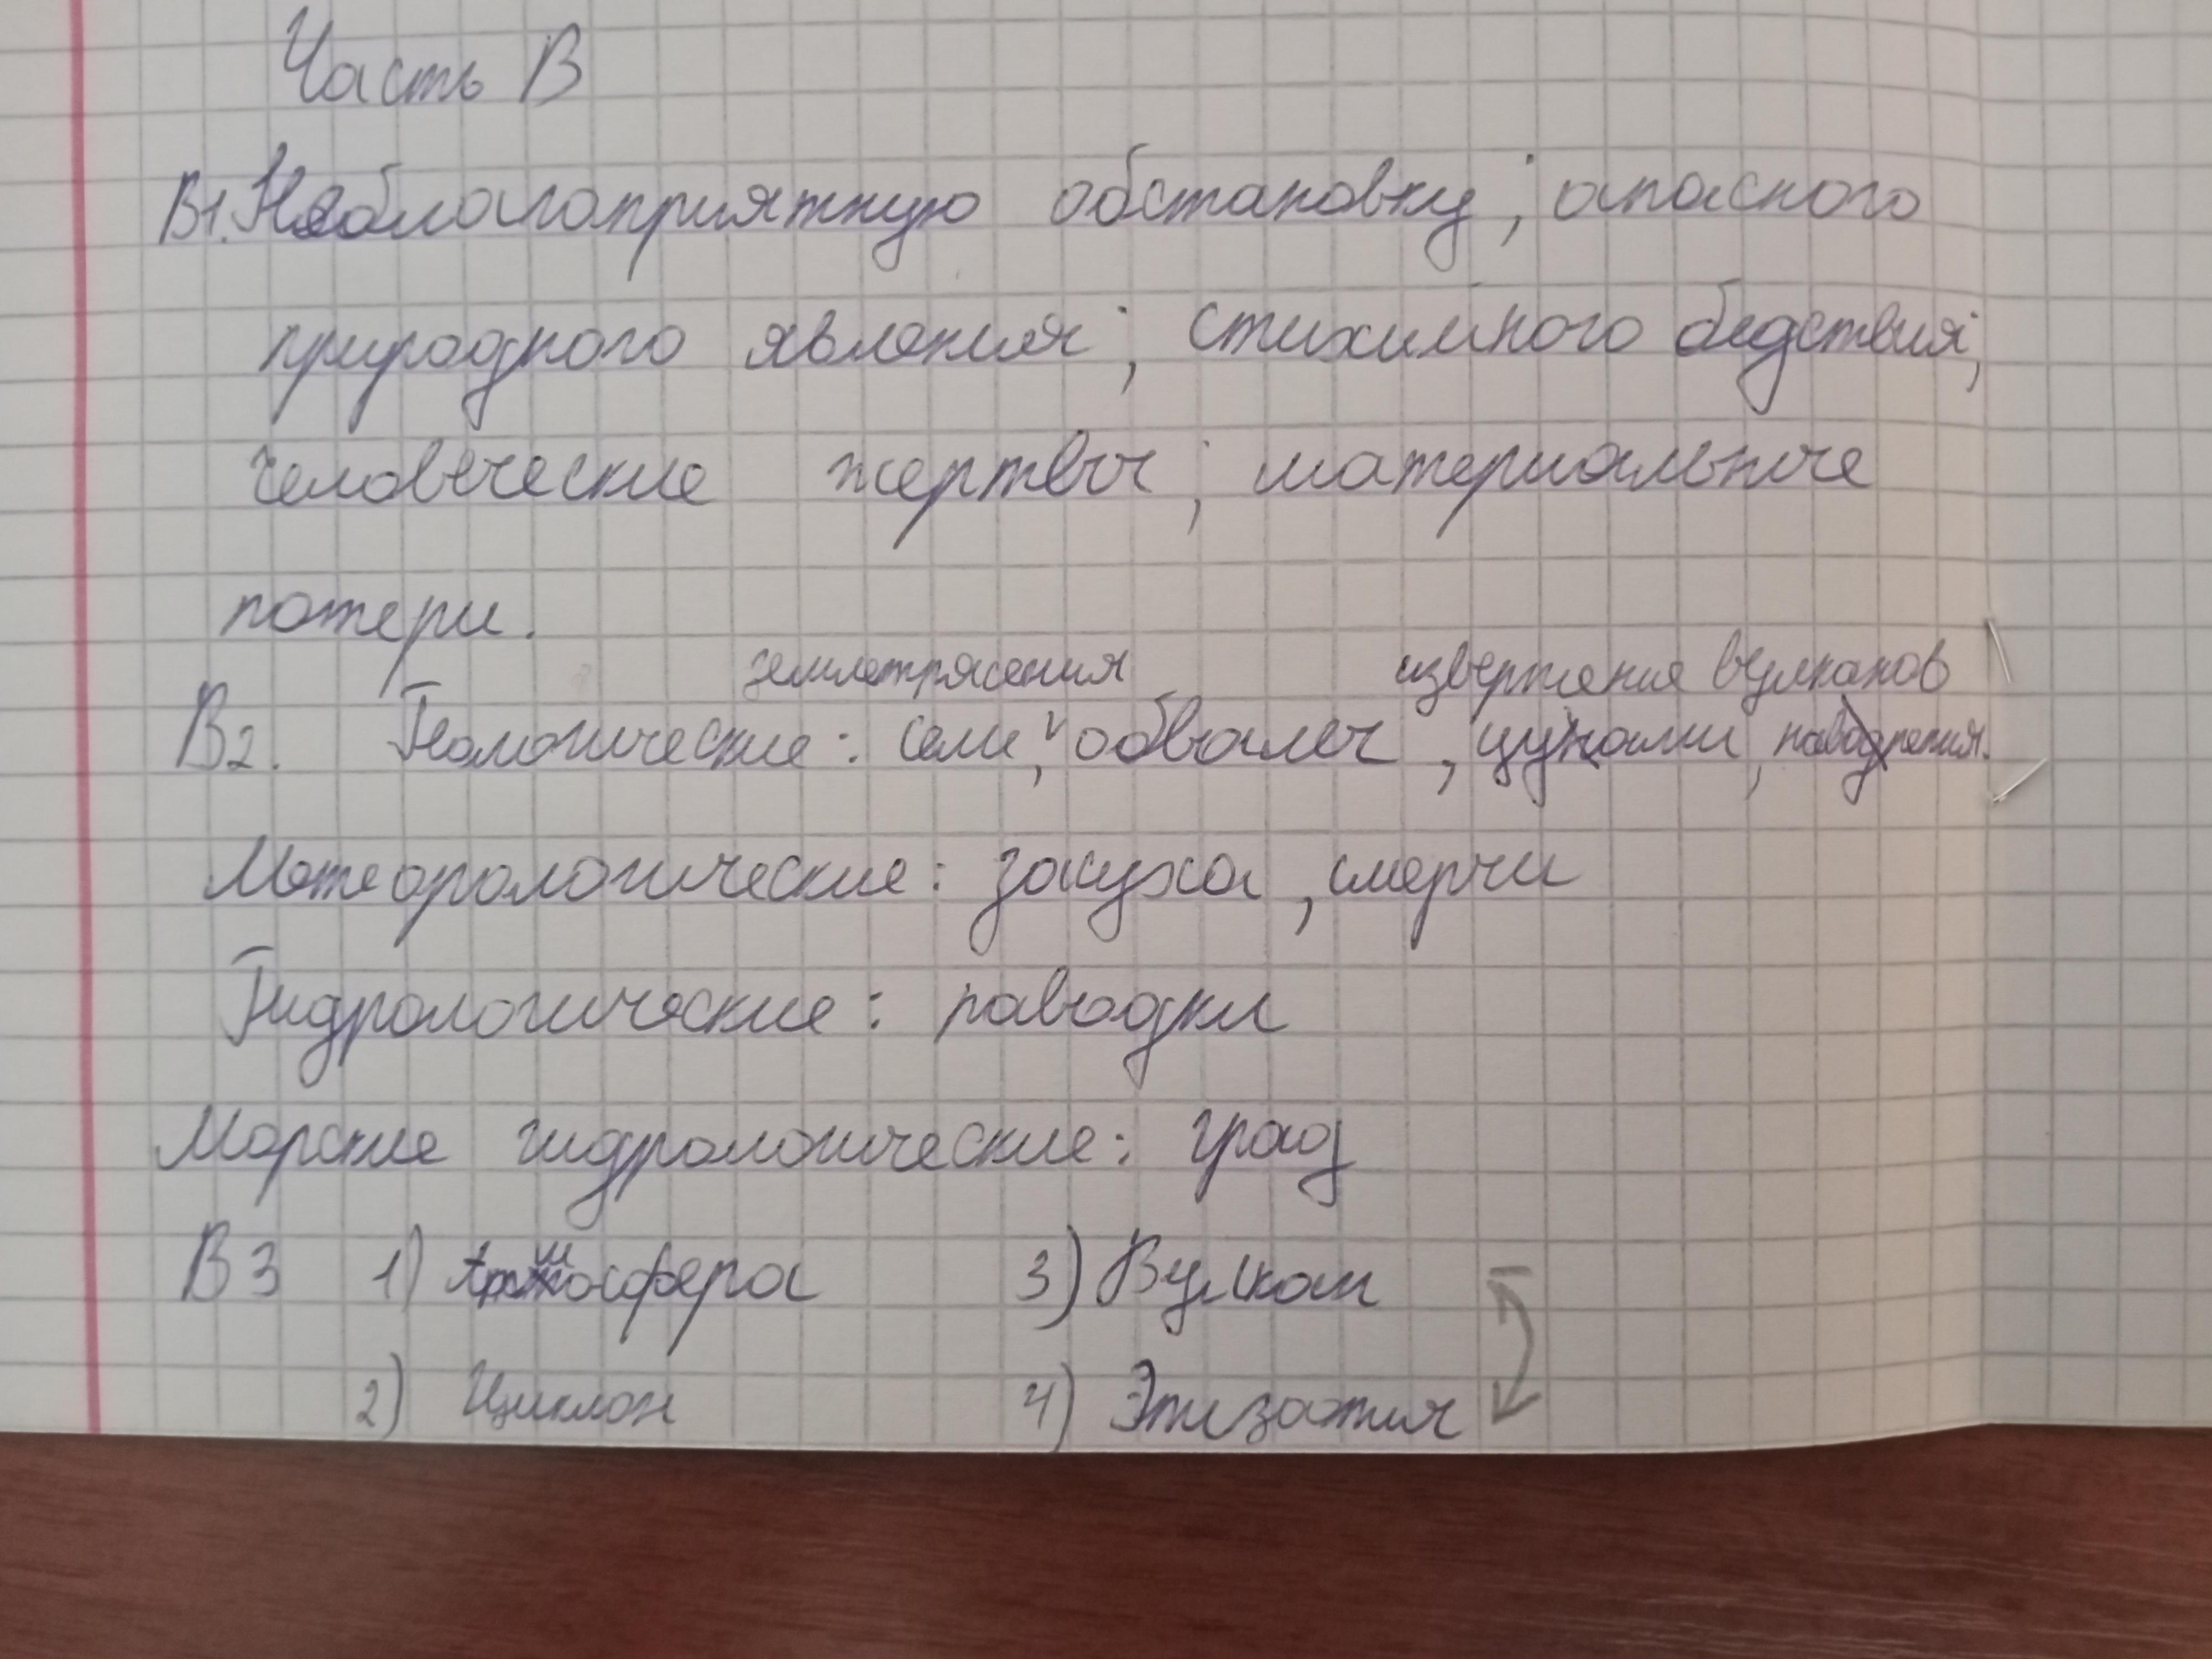 Часть В
В1. Неблагоприятную обстановку; опасного
природного явления; стихийного бедствия;
человеческие жертвы; материальные
потери.
землетрясения извержения вулканов
В2. Геологические: сели, обвалы, цунами, наводнения.
Метеорологические: засуха, смерчи
Гидрологические: паводки
Морские гидрологические: град
В3 1) Атмосфера 3) Вулкан
2) Циклон 4) Эпизоотия